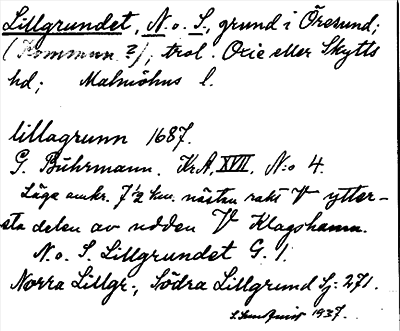 Lillgrundet, N. o. S., grund i Öresund;
(Kommun?), trol. Oxie eller Skytts
hd; Malmöhus l.
lillagrunn 1687.
G. Buhrmann. Kr.A, XVII, N:o 4.
Läge omkr. 7 1/2 km. nästan rakt V ytter-
sta delen av udden V Klagshamn.
N. o. S. Lillgrundet G. 1.
Norra Lillgr., Södra Lillgrund Sj. 271.
1937.